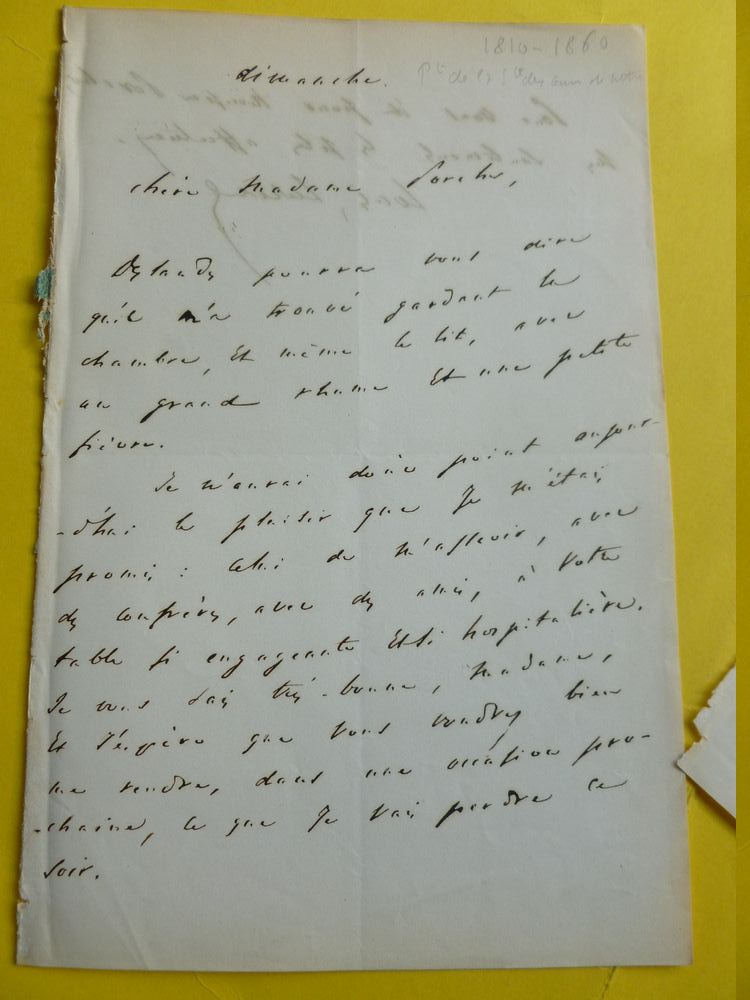 1810-1860
dimanche.
chère Madame Porcher,
Deslandes pourra vous dire
qu'il m'a trouvé gardant la
chambre, Et même le lit, avec
un grand rhume Et une petite
fièvre.
Je n'aurai donc point aujour-
-d'hui le plaisir que Je m'étais
promis : Celui de m'asseoir, avec
des confrères, avec des amis, à Votre
table si engageante Et si hospitalière.
Je vous sais très-bonne, Madame,
Et J'espère que Vous voudrez bien
me rendre, dans une occasion pro-
-chaine, ce que Je vais perdre ce
soir.